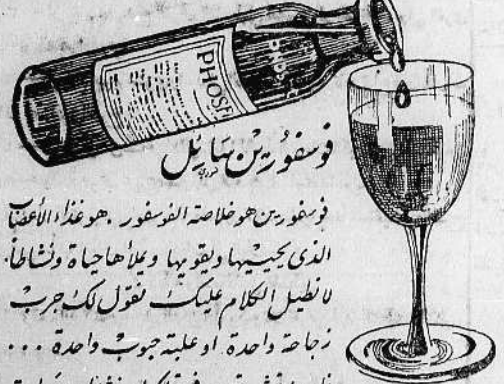 PHOSF
فوسفورين سائل
فوسفورين هو خلاصة الفوسفور . هو غذاء الأعصاب
الذى يحييها ويقويها ويملأها حياة ونشاطا .
لا نطيل الكلام عليك نقول لك جرب
زجاجة واحدة او علبة حبوب واحدة ...